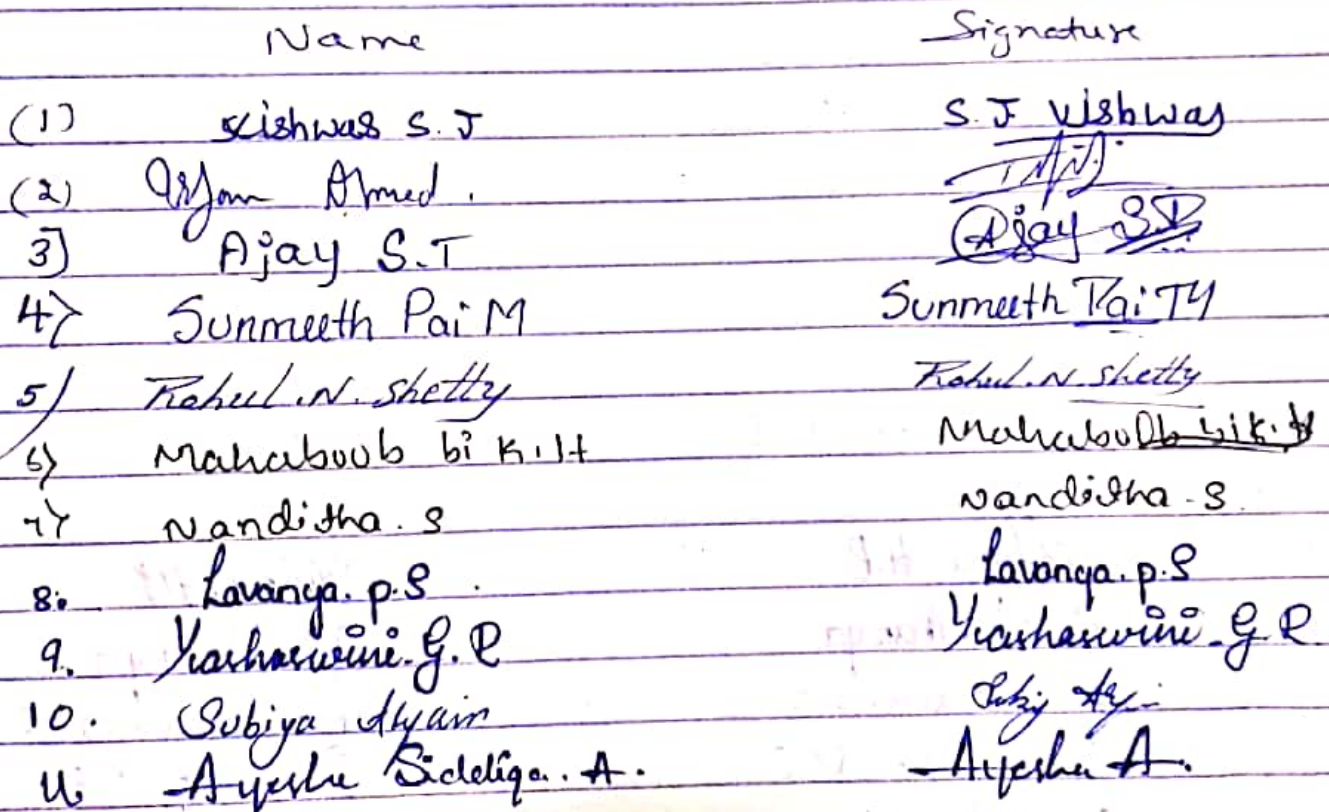 Name Signature
(1) Vishwas S.J S.J Vishwas
(2) Irfan Ahmed.
3) Ajay S.T Ajay S.T
4) Sunmeeth Pai M Sunmeeth Pai M
5) Rahul.N.Shetty Rahul.N Shetty
6) Mahaboob bi K.H Mahaboob bi K.H
7) Nanditha.S Nanditha.S
8. Lavanya.p.S Lavanya.p.S
9. Yashaswini.G.R Yashaswini.G.R
10. Subiya
11. Ayesha Siddiqa.A. Ayesha A.